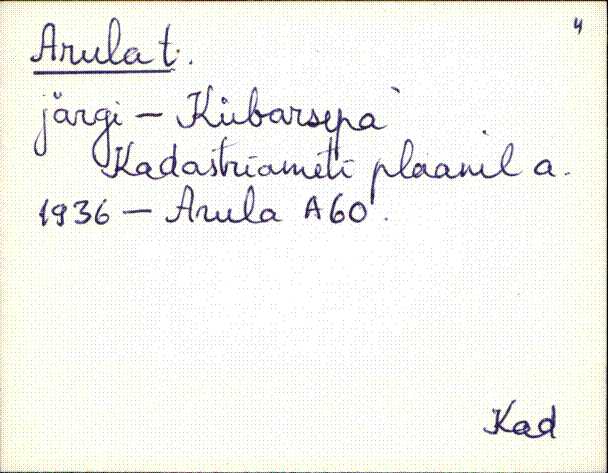 4
Arula t.
järgi – Kübarsepa`
Kadastriameti plaanil a.
1936 – Arula A60.
Kad